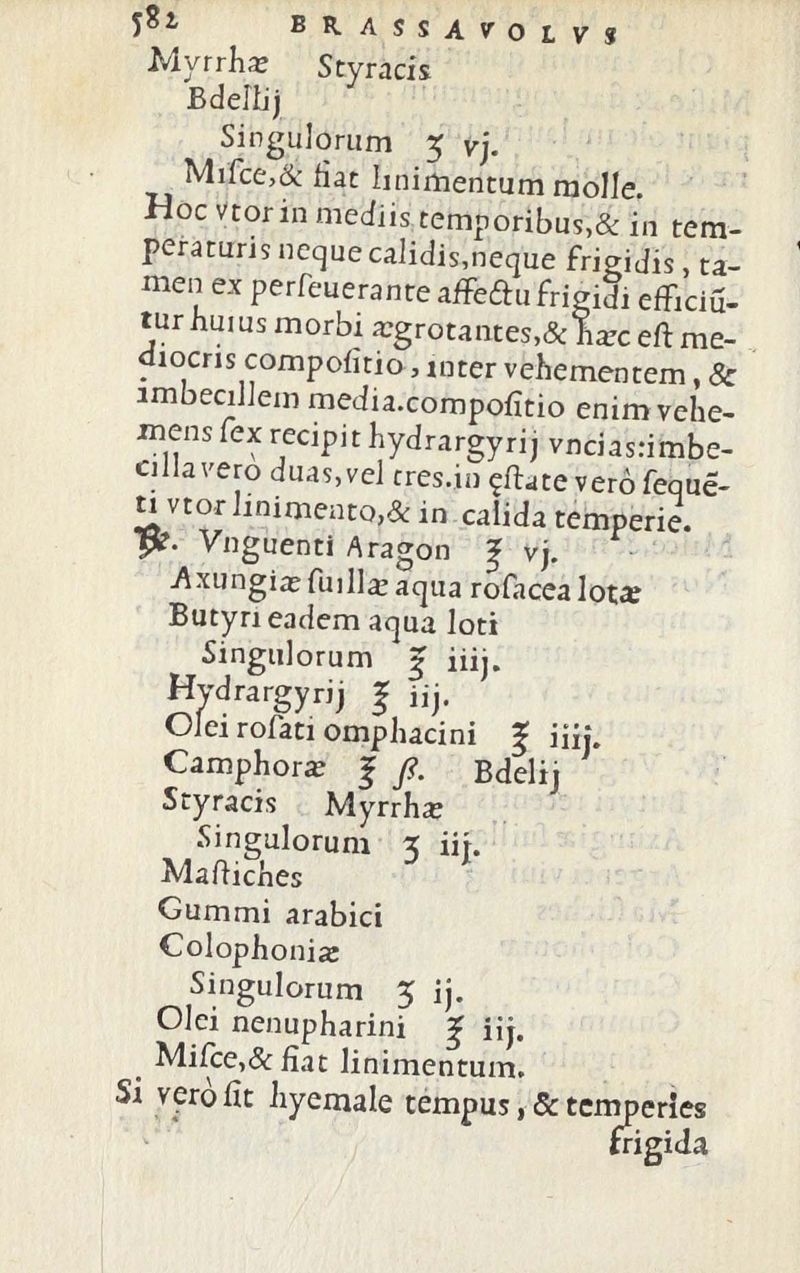 582 BRASSAVOLVS
Myrrhæ Styracis
Bdellij
Singulorum ʒ vj.
Miſce,& fiat linimentum molle.
Hoc vtor in mediis temporibus,& in tem-
peraturis neque calidis,neque frigidis, ta-
men ex perſeuerante affectu frigidi efficiũ-
tur huius morbi ægrotantes,& hæc eſt me-
diocris compoſitio, inter vehementem, &
imbecillem media.compoſitio enim vehe-
mens ſex recipit hydrargyrij vncias:imbe-
cilla verò duas,vel tres.in ęſtate verò ſequẽ-
ti vtor linimento,& in calida temperie.
℞. Vnguenti Aragon ℥ vj.
Axungiæ ſuillæ aqua roſacea lotæ
Butyri eadem aqua loti
Singulorum ℥ iiij.
Hydrargyrij ℥ iij.
Olei roſati omphacini ℥ iiij.
Camphoræ ℥ ß. Bdelij
Styracis Myrrhæ
Singulorum ʒ iij.
Maſtiches
Gummi arabici
Colophoniæ
Singulorum ʒ ij.
Olei nenupharini ℥ iij.
Miſce,& fiat linimentum.
Si verò ſit hyemale tempus, & temperies
frigida